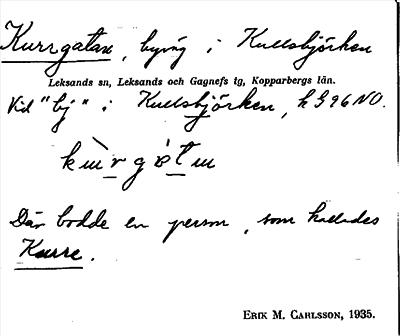 Kurrgatan, byväg i Kullsbjörken
Leksands sn, Leksands och Gagnefs tg, Kopparbergs län.
Vid "bj" i Kullsbjörken, k 396 NO.
Där bodde en person, som kallades
Kurre.
ERIK M. CARLSSON, 1935.